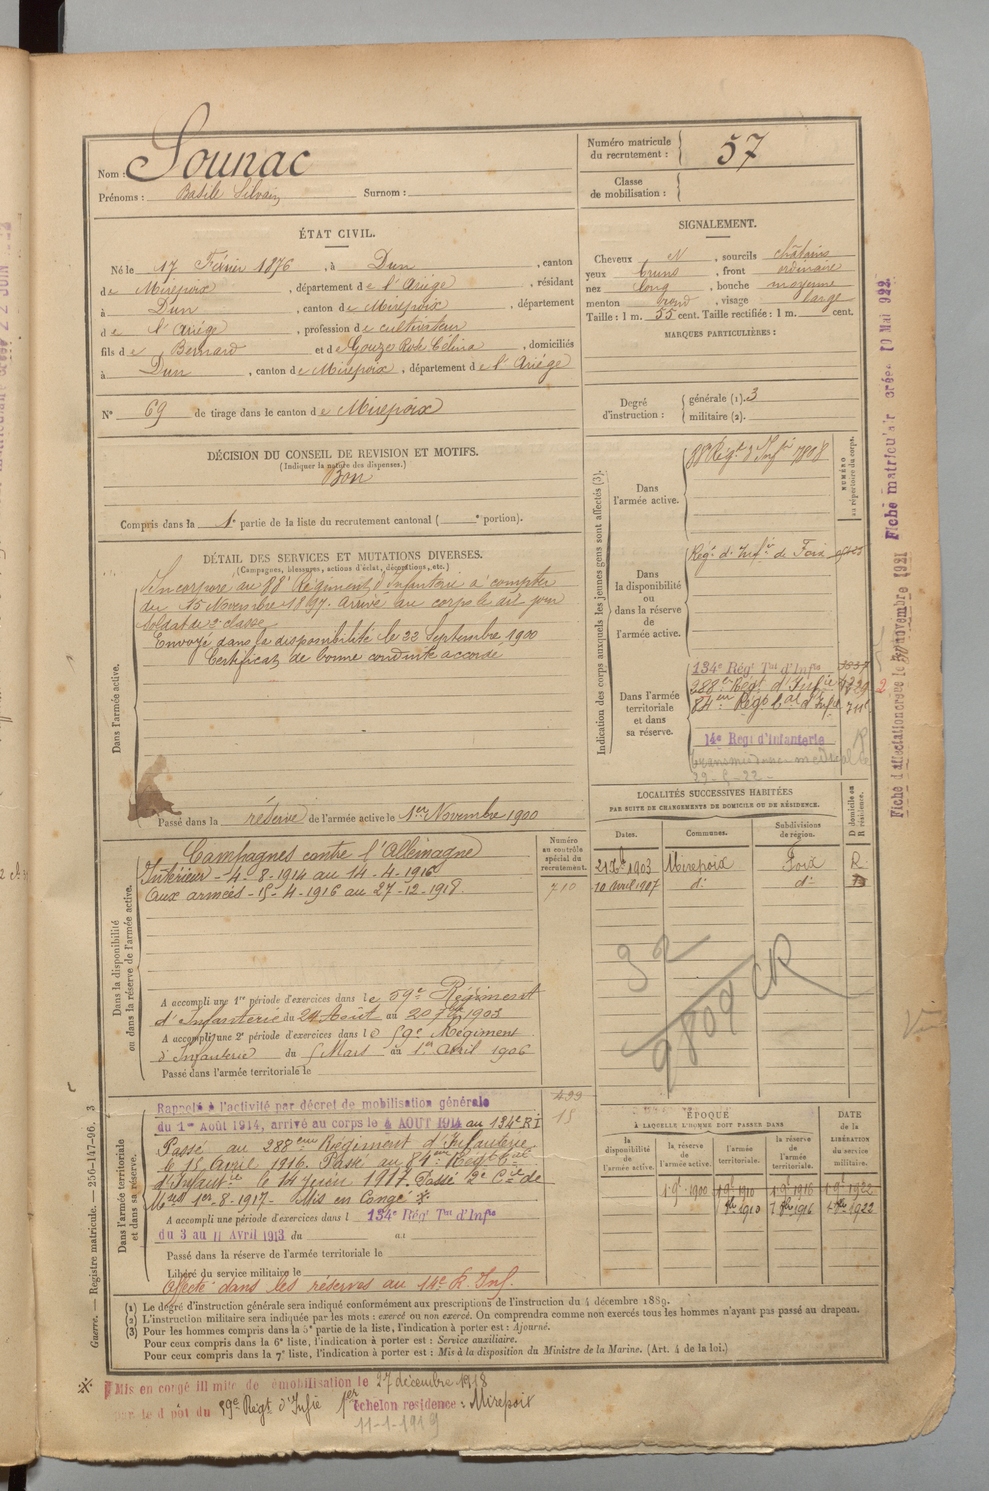 Nom : Sounac
Prénoms : Basile Silvain Surnom :
Numéro matricule du recrutement : 57
Classe de mobilisation :
ÉTAT CIVIL.
Né le 17 Février 1876, à Dun, canton
de Mirepoix, département de l'Ariége, résidant
à Dun, canton de Mirepoix, département
de l'Ariége, profession de cultivateur
fils de Bernard et de Gouze Rose Célina, domiciliés
à Dun, canton de Mirepoix, département de l'Ariége
N° 69 de tirage dans le canton de Mirepoix
SIGNALEMENT.
Cheveux N, sourcils châtains
yeux bruns, front ordinaire
nez long, bouche moyenne
menton rond, visage large
Taille : 1 m. 55 cent. Taille rectifiée : 1 m. cent.
MARQUES PARTICULIÈRES :
Degré d'instruction : générale (1). 3
militaire (2).
DÉCISION DU CONSEIL DE REVISION ET MOTIFS.
(Indiquer la nature des dispenses.)
Bon
Compris dans la 1e partie de la liste du recrutement cantonal ( e portion).
DÉTAIL DES SERVICES ET MUTATIONS DIVERSES.
(Campagnes, blessures, actions d'éclat, décorations, etc.)
Dans l'armée active.
Incorporé au 88e Régiment d'Infanterie à compter
du 15 Novembre 1897. Arrivé au corps le dit jour
soldat de 2e classe
Envoyé dans la disponibilité le 22 Septembre 1900
Certificat de bonne conduite accordé
Passé dans la réserve de l'armée active le 1er Novembre 1900
Indication des corps auxquels les jeunes gens sont affectés (3).
NUMÉRO au répertoire du corps.
Dans l'armée active.
88 Régt d'Infie 7808
Dans la disponibilité ou dans la réserve de l'armée active.
Régt d'Infie de Foix
Dans l'armée territoriale et dans sa réserve.
134e Régt Tal d'Infie
288em Régt d'Infie
84em Régt tal d'Infie
14e Regt d'Infanterie
LOCALITÉS SUCCESSIVES HABITÉES
PAR SUITE DE CHANGEMENTS DE DOMICILE OU DE RÉSIDENCE.
Dates. Communes. Subdivisions de région. D domicile ou R résidence.
1903 Mirepoix Foix R
10 Avril 1907 d° d°
32
9809 CR
Dans la disponibilité ou dans la réserve de l'armée active.
Numéro au contrôle spécial du recrutement.
710
Campagnes contre l'Allemagne
Intérieur - 4-8-1914 au 14-4-1916
Aux armées - 15-4-1916 au 27-12-1918
A accompli une 1re période d'exercices dans le 59e Régiment
d'Infanterie du 24 Août au 20 7bre 1903
A accompli une 2e période d'exercices dans le 59e Régiment
d'Infanterie du 5 Mars au 1er Avril 1906
Passé dans l'armée territoriale le
Dans l'armée territoriale et dans sa réserve.
Rappelé à l'activité par décret de mobilisation générale
du 1er Août 1914, arrivé au corps le 4 AOUT 1914 au 134e RI
Passé au 288ème Régiment d'Infanterie
le 15 Avril 1916. Passé au 84em Régt tal
d'Infantie le 14 Juin 1917. Passé 2e Cie de
1er-8-1917 - Mis en Congé ※
A accompli une période d'exercices dans l 134e Régt Tal d'Infie
du 3 au 11 Avril 1913 du au
Passé dans la réserve de l'armée territoriale le
Libéré du service militaire le
Affecté dans les réserves au 14e R. Inf.
ÉPOQUE
À LAQUELLE L'HOMME DOIT PASSER DANS
la disponibilité de l'armée active. la réserve de l'armée active. l'armée territoriale. la réserve de l'armée territoriale.
DATE de la LIBÉRATION du service militaire.
1 9e 1900 1 9e 1910 1 9e 1916 1 9e 1922
1910 1916 1922
(1) Le degré d'instruction générale sera indiqué conformément aux prescriptions de l'instruction du 4 décembre 1889.
(2) L'instruction militaire sera indiquée par les mots : exercé ou non exercé. On comprendra comme non exercés tous les hommes n'ayant pas passé au drapeau.
(3) Pour les hommes compris dans la 5e partie de la liste, l'indication à porter est : Ajourné.
Pour ceux compris dans la 6e liste, l'indication à porter est : Service auxiliaire.
Pour ceux compris dans la 7e liste, l'indication à porter est : Mis à la disposition du Ministre de la Marine. (Art. 4 de la loi.)
※ Mis en congé illimité de démobilisation le 27 décembre 1918
par le dépôt du 59e Régt d'Infie 1er échelon residence : Mirepoix
11-1-1919
Guerre. — Registre matricule. — 256-147-96. 3
Fiche d'affectation reçue le novembre 1921 Fiche matriculair créée 10 Mai 922